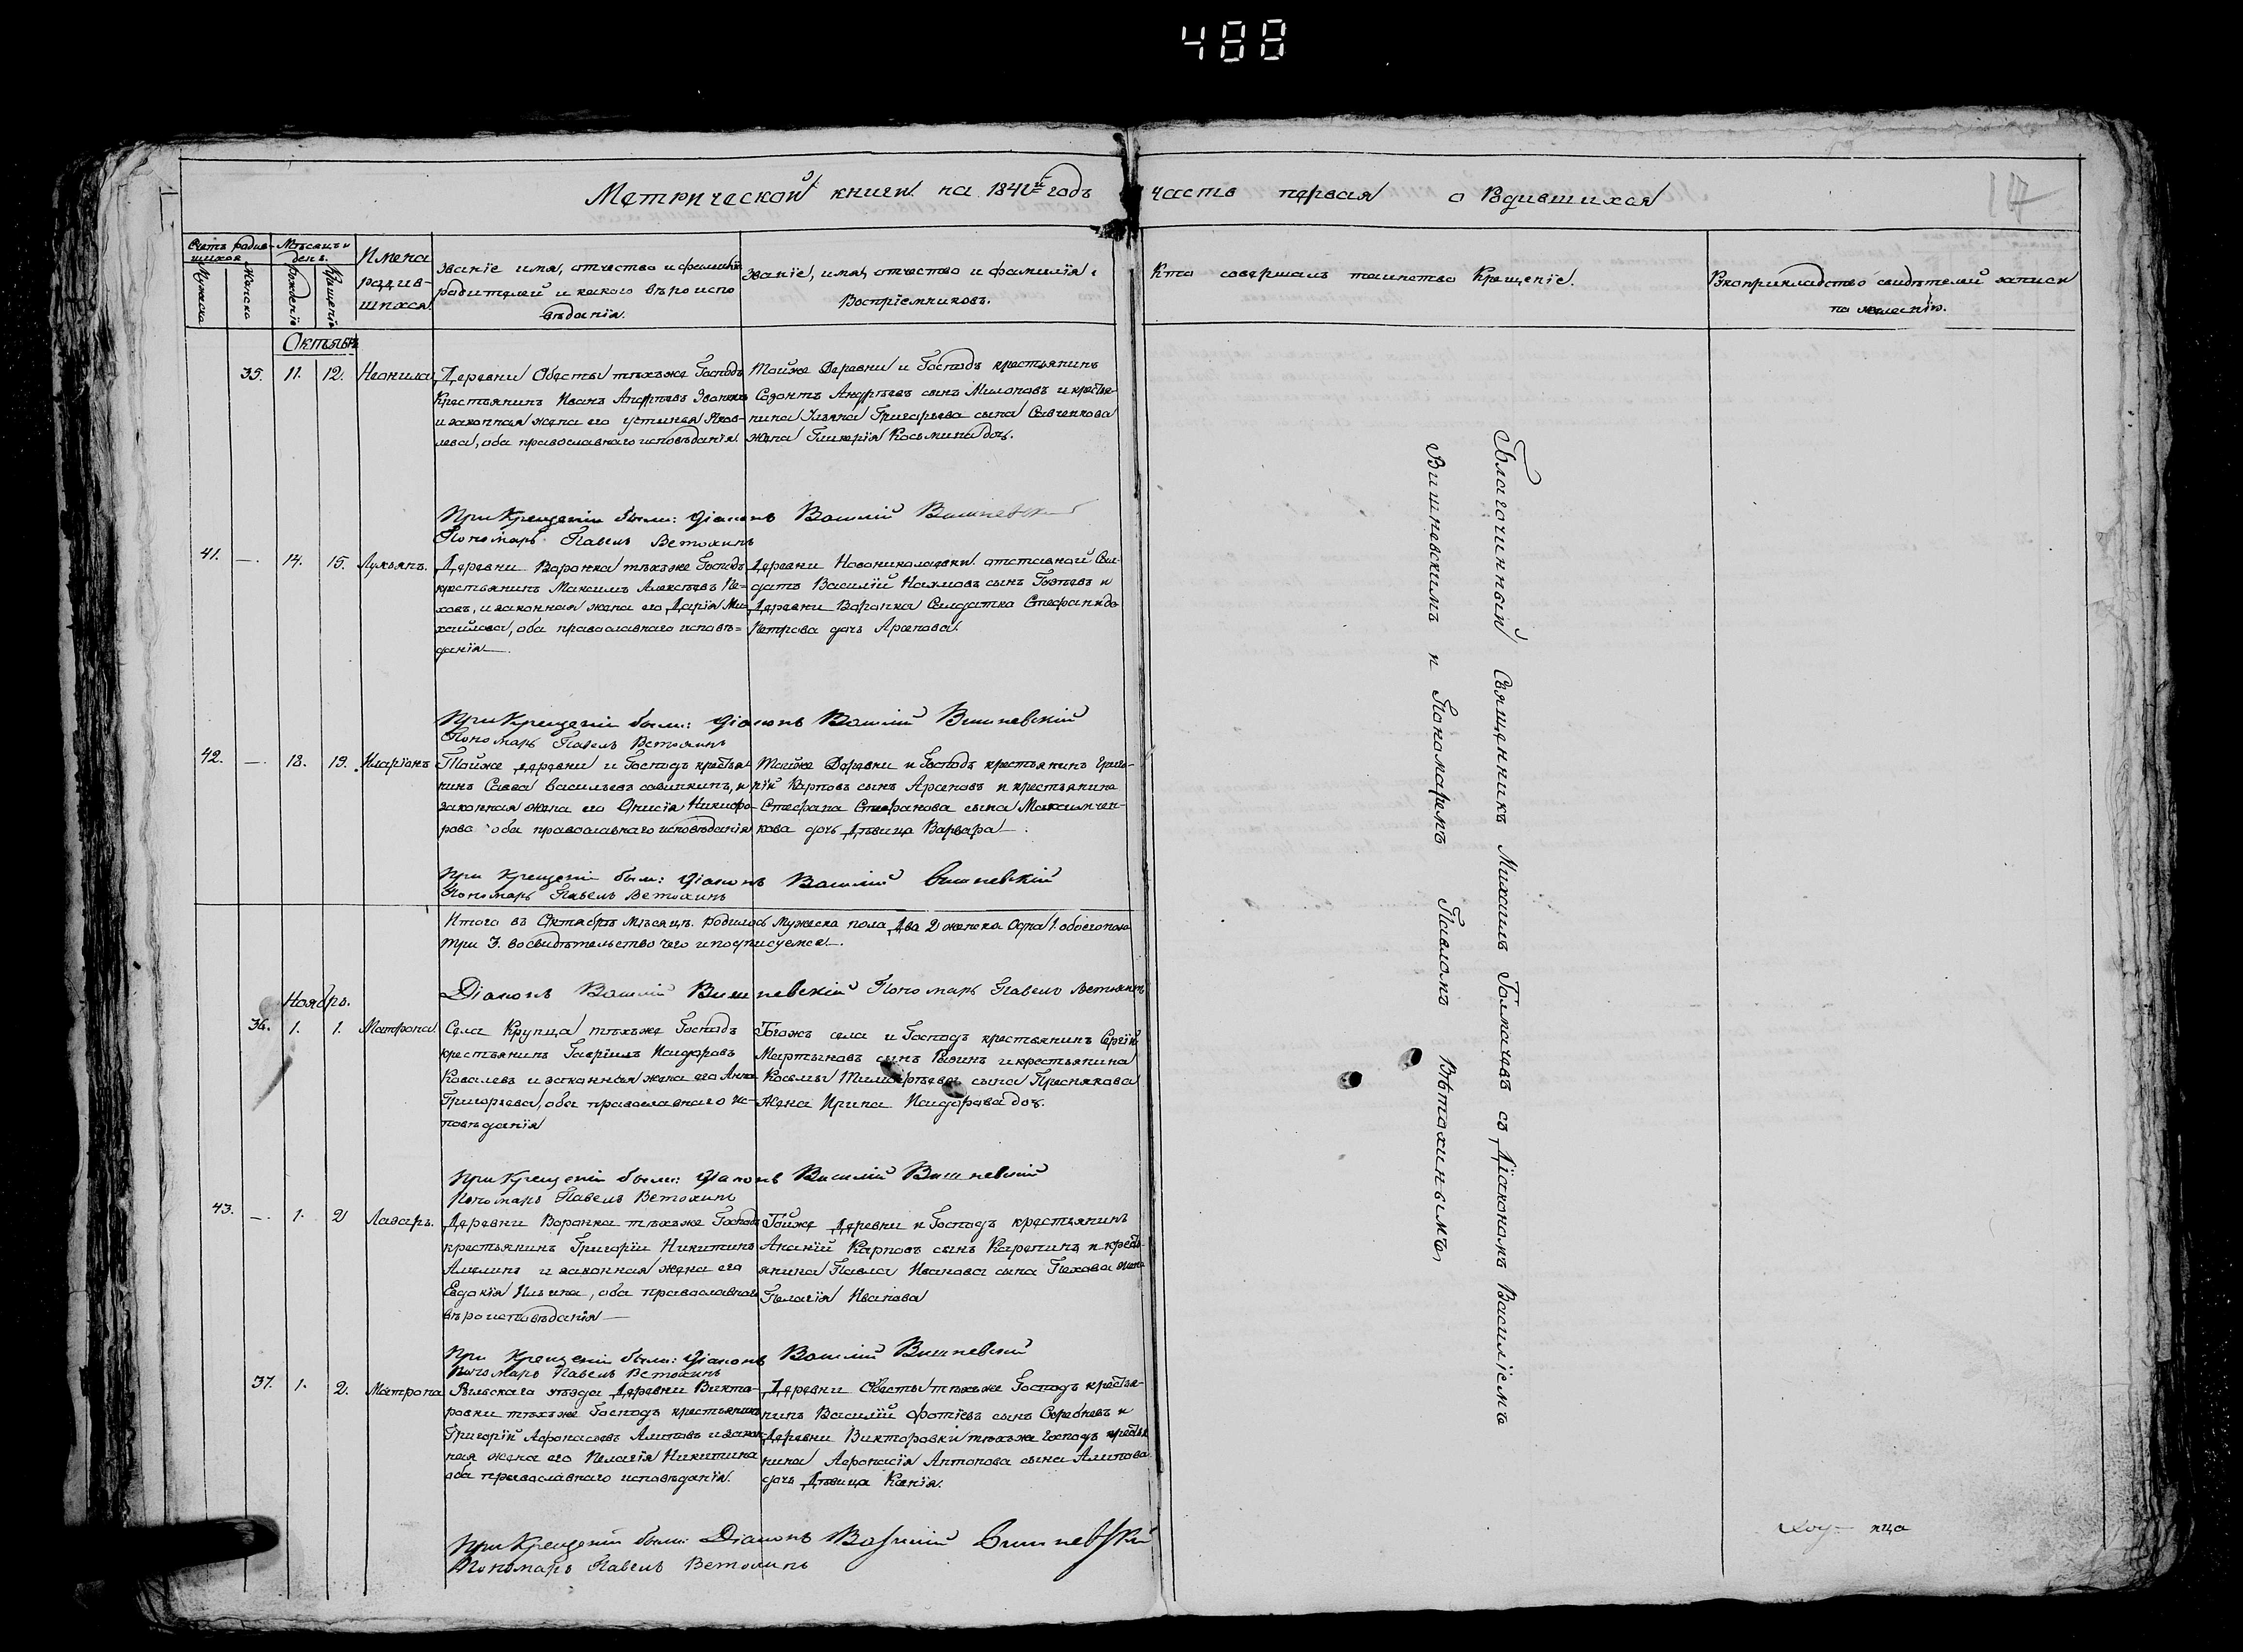 488
Метрической книги на 1841й годъ часть первая о Родившихся
14
Счетъ родив-
шихся
Мѣсяцъ и
день.
Мужеска
Женска
Рожденіе
Крещеніе
Имена
родив-
шихся
Званіе имя, отчество и фамилія
родителей и какого вѣроиспо
вѣданія.
Званіе, имя, отчество и фамилія,
Воспріемниковъ.
Кто совершалъ таинство Крещеніе.
свидѣтелей записи
по
Октябрь
35. 11. 12. Неонила
Деревни Обесты тѣхъже Господъ
Крестьянинъ Иванъ Андреевъ
и законная жена его Устинья Яков-
лева, оба православнаго исповѣданія
Тойже Деревни и Господъ крестьянинъ
Созонтъ Андреевъ сынъ Милоповъ и кресть-
нина Ульяна Григорьева сына Савченкова
жена Гликерія Косьмина дочь.
При Крещеніи были: Діаконъ Василій Вишневскій
Пономарь Павелъ Ветохинъ
41. —. 14. 15. Лукьянъ.
Деревни Воронка тѣхъже Господъ
крестьянинъ Максимъ Алексѣевъ Пе-
ховъ, и законная жена его Дарія Ми-
хайлова, оба православнаго исповѣ-
данія
Деревни Новониколаевки отставной Сол-
датъ Василій Наумовъ сынъ и
Деревни Воронка Солдатка Стефанида
Петрова дочь Арепова.
При Крещеніи были: Діаконъ Василій Вишневскій
Пономарь Павелъ Ветохинъ
42. —. 18. 19. Иларіонъ
Тойже деревни и Господъ крестья
нинъ Савва Васильевъ и
законная жена его Онисія Никифо-
рова оба православнаго исповѣданія
Тойже Деревни и Господъ крестьянинъ
Карповъ сынъ Арсеновъ и крестьянина
Стефана Стефанова сына Максимчен-
кова дочь Дѣвица Варвара.
При Крещеніи были: Діаконъ Василій Вишневскій
Пономарь Павелъ Ветохинъ
Итого въ Октябрѣ мѣсяцѣ родилось Мужеска пола Два 2 женска Одна 1. обоего пола
три 3. во свидѣтельство чего и подписуемся.
Діаконъ Василій Вишневскій Пономарь Павелъ Ветохинъ
Ноябрь.
36. 1. 1. Матрона
Села Крупца тѣхъже Господъ
крестьянинъ Гавріилъ Исидоровъ
Ковалевъ и законная жена его Анна
Григорьева, оба православнаго ис-
повѣданія
Тогожъ села и Господъ крестьянинъ Сергій
Мартыновъ сынъ и крестьянина
Косьмы Тимофѣева сына Преснякова
Жена Ирина Исидорова доч.
При Крещеніи были: Діаконъ Василій Вишневскій
Пономарь Павелъ Ветохинъ
43. —. 1. 2 Лазарь.
Деревни Воронка тѣхъже Господъ
крестьянинъ Григорій Никитинъ
Амелинъ и законная жена его
Евдокія Ильина, оба православнаго
вѣроисповѣданія
Тойже Деревни и Господъ крестьянинъ
Ананій Карповъ сынъ Карепинъ и кресть-
янина Павла Иванова сына Пехова жена
Пелагія Иванова
При Крещеніи были: Діаконъ Василій Вишневскій
Пономарь Павелъ Ветохинъ
37. 1. 2. Матрона
Рыльскаго уѣзда Деревни Викто-
ровки тѣхъже Господъ крестьянинъ
Григорій Афонасьевъ Алиповъ и закон-
ная жена его Пелагія Никитина
оба православнаго исповѣданія.
Деревни Обесты тѣхъже Господъ крестья-
нинъ Василій Фотіевъ сынъ и
Деревни Викторовки тѣхъже Господъ крестья
нина Афонасія Антонова сына Алипова
дочь Дѣвица Ксенія.
При Крещеніи были: Діаконъ Василій Вишневскій
Пономарь Павелъ Ветохинъ
Благочинный Священникъ Михаилъ Толмачевъ съ Діакономъ Василіемъ
Вишневскимъ и Пономаремъ Павломъ Вѣтохинымъ
нца